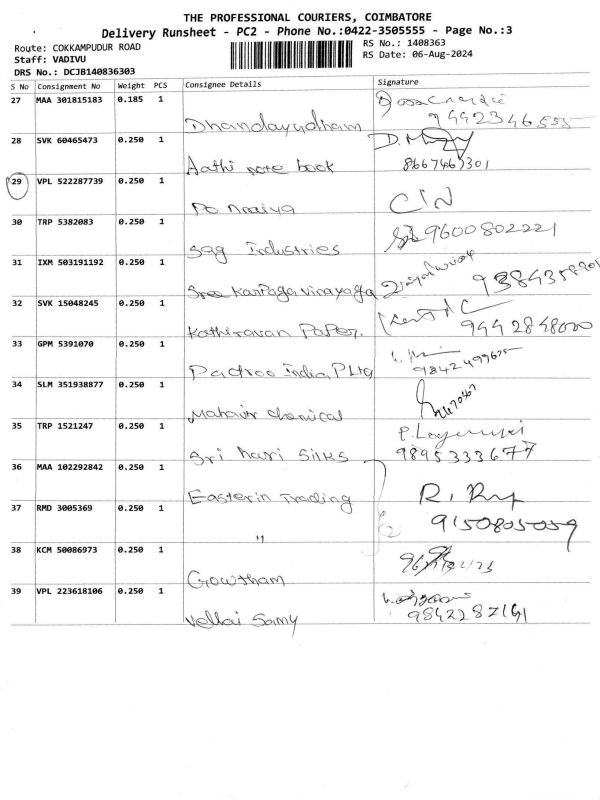 THE PROFESSIONAL COURIERS, COIMBATORE
Delivery Runsheet - PC2 - Phone No.:0422-3505555 - Page No.:3
Route: COKKAMPUDUR ROAD
RS No.: 1408363
Staff: VADIVU
RS Date: 06-Aug-2024
DRS No.: DCJB140836303
S No Consignment No Weight PCS Consignee Details Signature
27 MAA 301815183 0.185 1
Dhandayudham 9442346555
28 SVK 60465473 0.250 1
Aathi note book 8667463301
29 VPL 522287739 0.250 1
30 TRP 5382083 0.250 1
Sag Industries 9600802221
31 IXM 503191192 0.250 1
Sree Karpaga vinayaga
32 SVK 15048245 0.250 1
Kathiravan Paper. 9442848000
33 GPM 5391070 0.250 1
India P Ltd 9842499675
34 SLM 351938877 0.250 1
Mahavir chemical
35 TRP 1521247 0.250 1
Sri hari Silks 9895333677
36 MAA 102292842 0.250 1
Easterin Trading
37 RMD 3005369 0.250 1
" 9150805059
38 KCM 50086973 0.250 1
Gowtham
39 VPL 223618106 0.250 1
Vellai Samy 9842287161